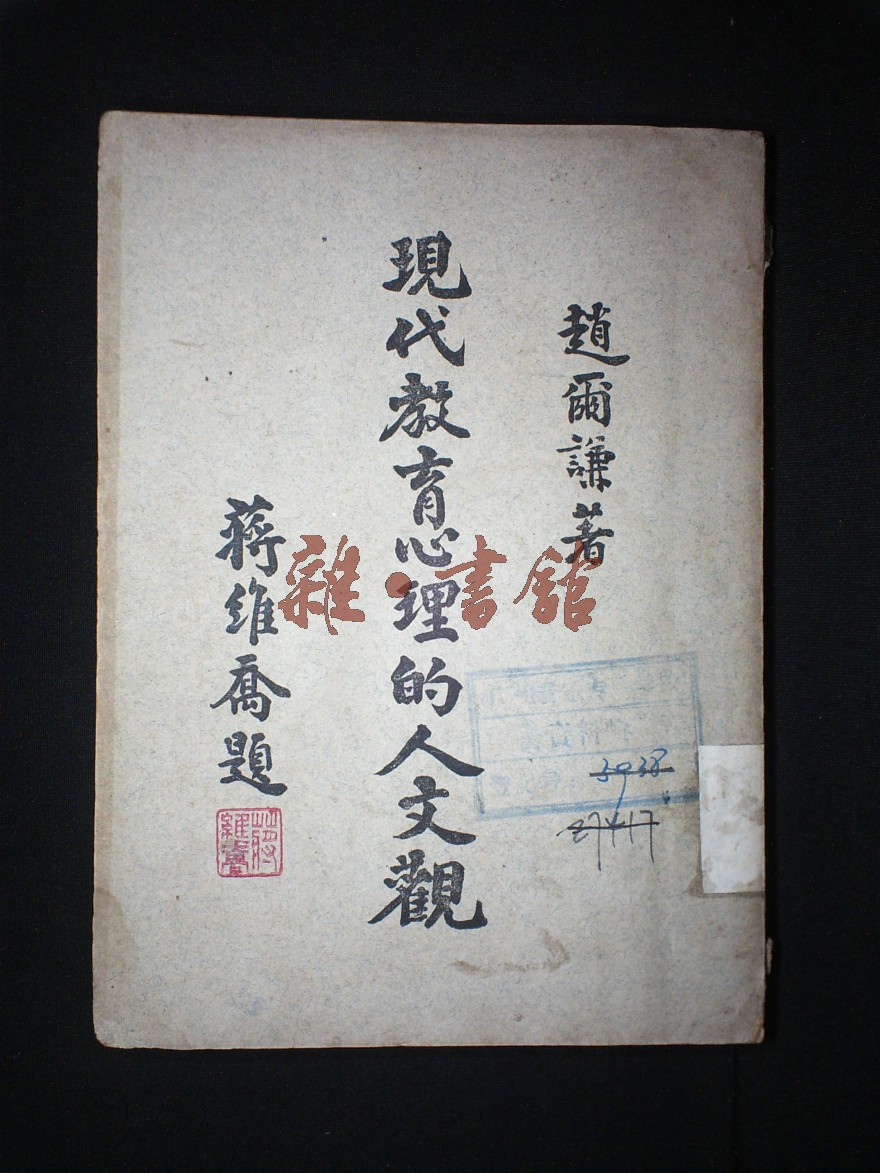 趙爾謙著
現代教育心理的人文觀
蔣維喬題
蔣維喬
雜·書館
3938
27417